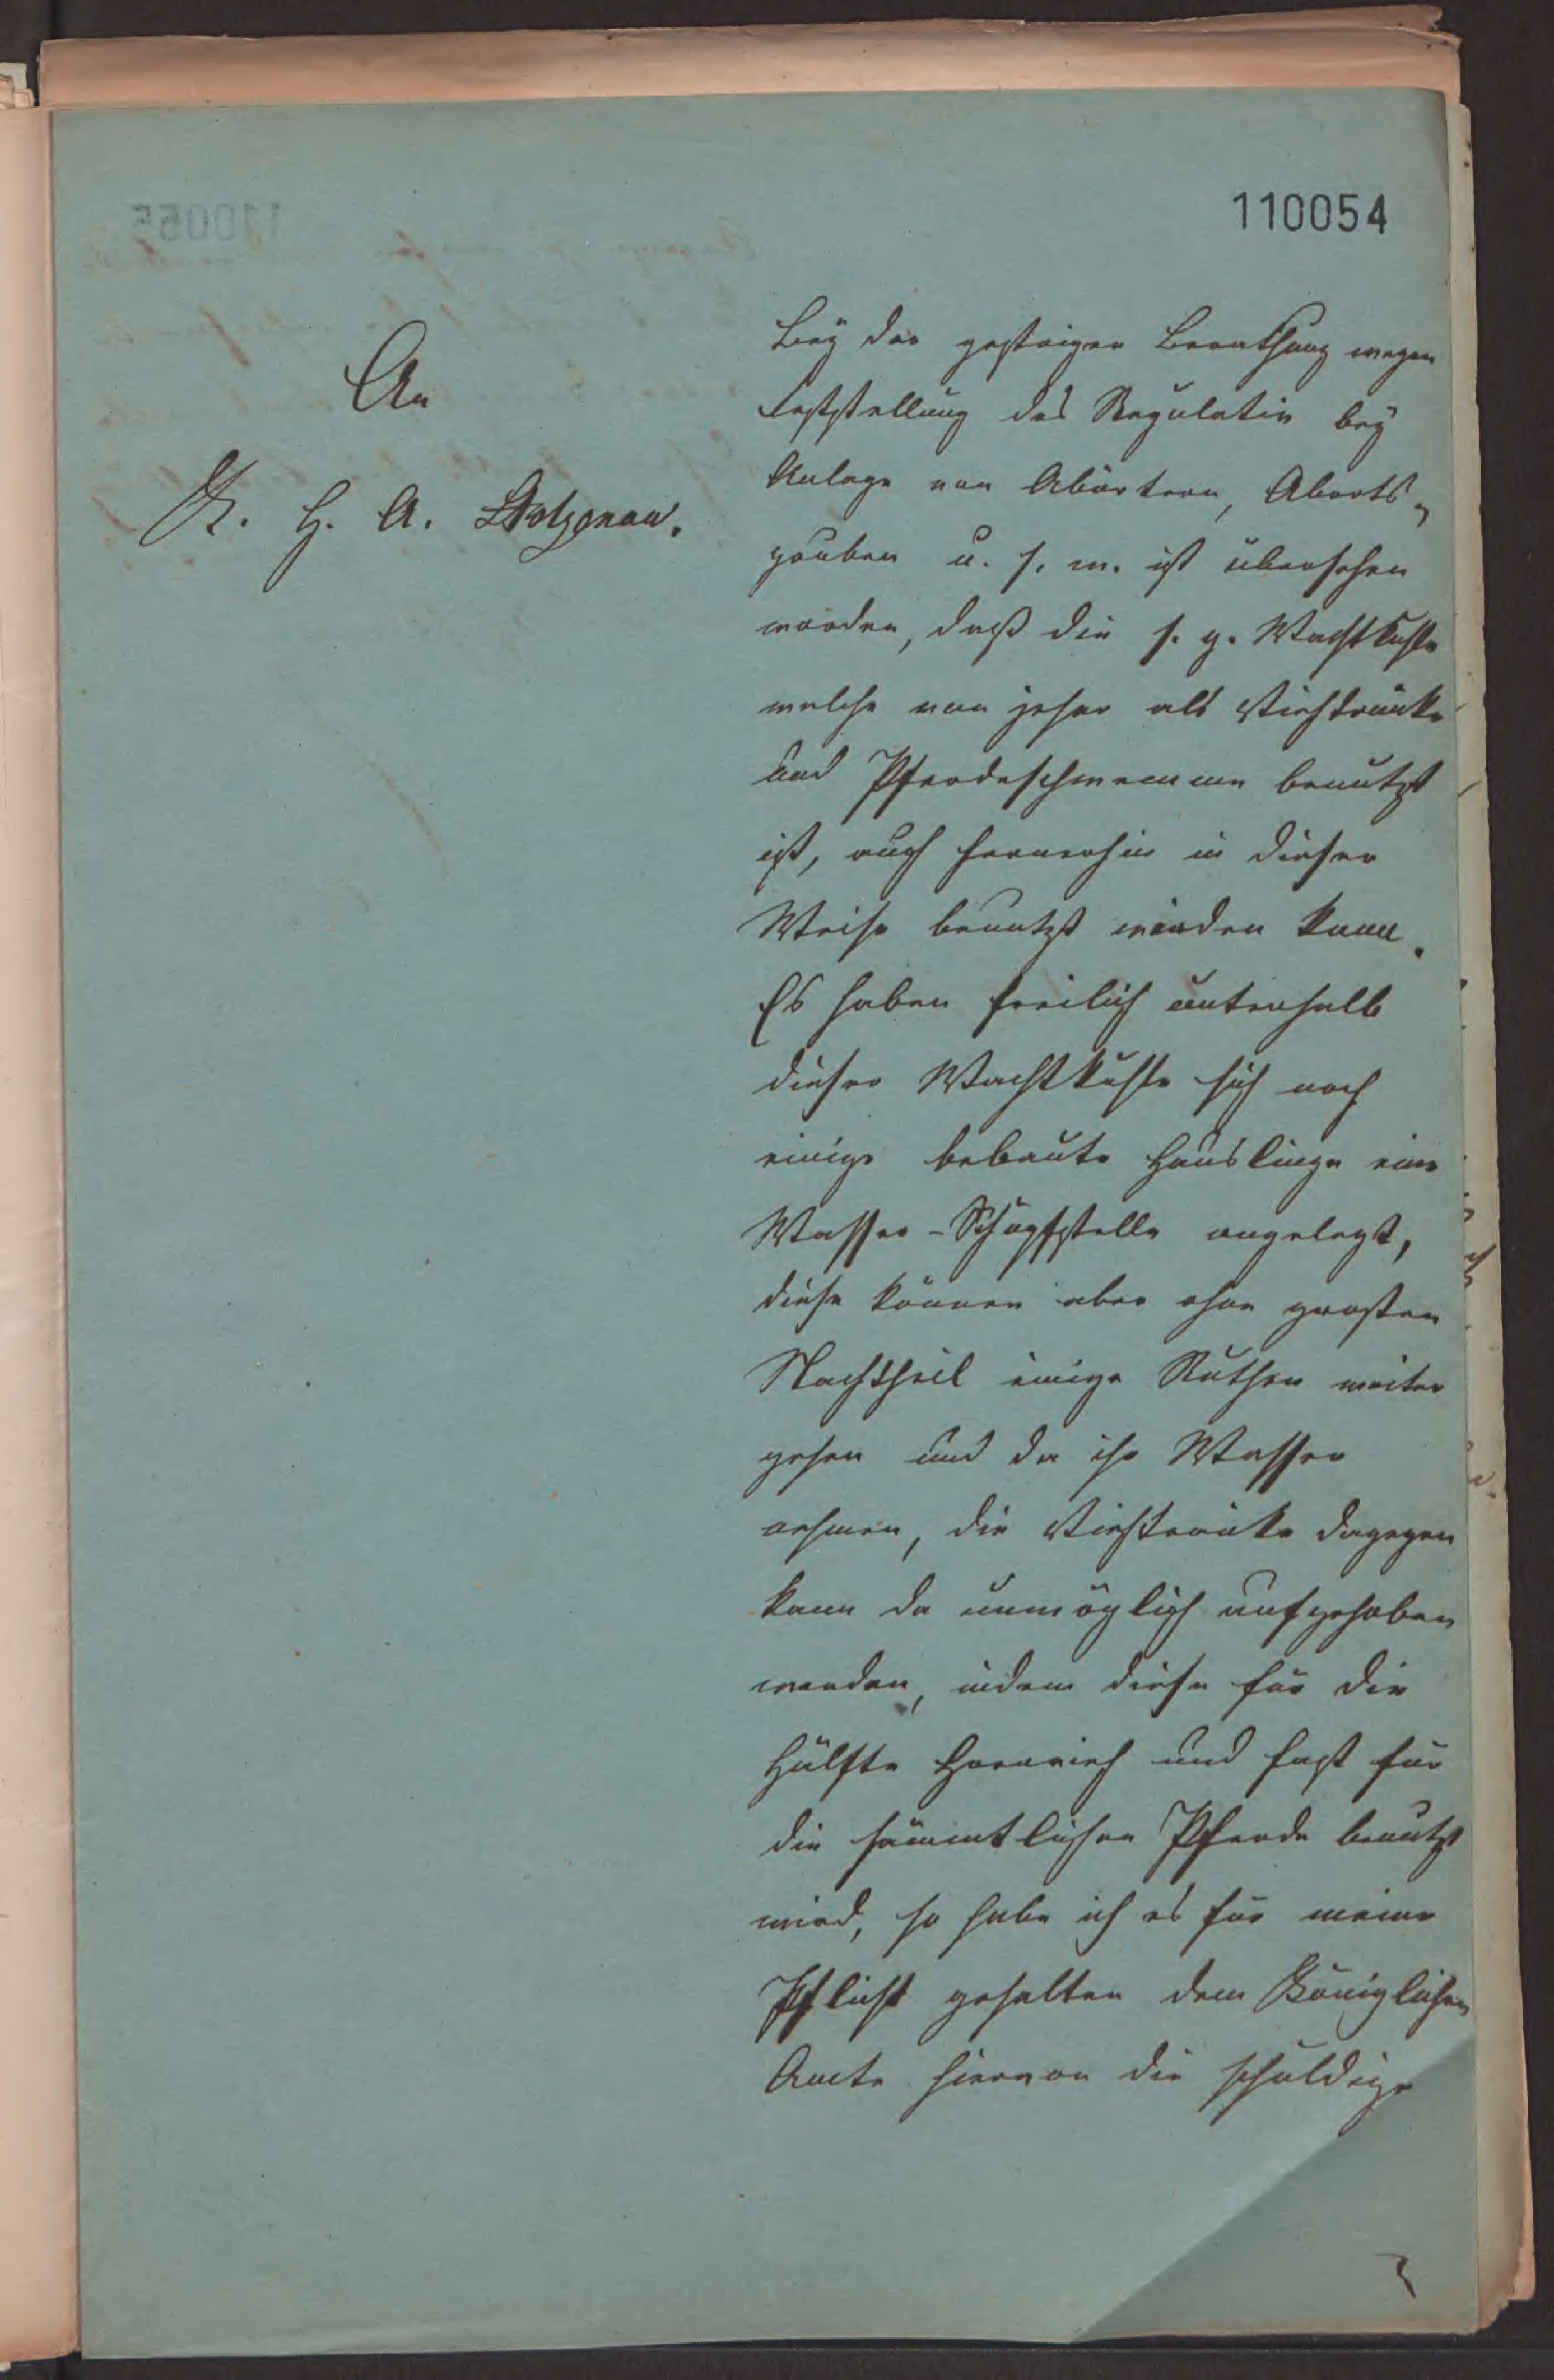 110054
An
K. H. A. Stolzenau.
Bey der gestrigen Berathung wegen
Feststellung des Regulativ bey
Anlage von Abörtern, Aborts-
gruben u. s. w. ist übersehen
worden, daß die s. g. Wachtkuhle
welche von jeher als Viehtränke
und Pferdeschwemme benutzt
ist, auch fernerhin in dieser
Weise benutzt werden kann.
Es haben freilich unterhalb
dieser Wachtkuhle sich noch
einige bebaute Häuslinge eine
Wasser-Schöpfstelle angelegt,
diese können aber ohne großen
Nachtheil einige Ruthen weiter
gehen und da ihr Wasser
nehmen, die Viehtränke dagegen
kann da unmöglich aufgehoben
werden, indem diese für die
Hälfte Hornvieh und fast für
die sämmtlichen Pferde benutzt
wird, so habe ich es für meine
Pflicht gehalten dem Königlichen
Amte hiervon die schuldige